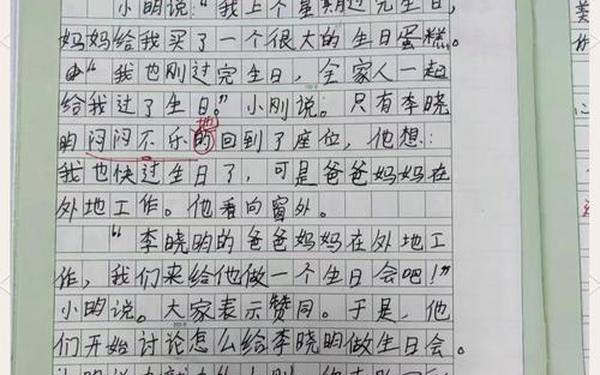 小明说：“我上个星期过完生日，
妈妈给我买了一个很大的生日蛋糕。
“我也刚过完生日，全家人一起
给我过了生日。”小刚说。只有李晓
地
明闷闷不乐的回到了座位，他想：
我也快过生日了，可是爸爸妈妈在
外地工作。他看向窗外。
“李晓明的爸爸妈妈在外地工
作，我们来给他做一个生日会吧！”
小明说。大家表示赞同。于是，他
们开始讨论怎么给李晓明做生日会。